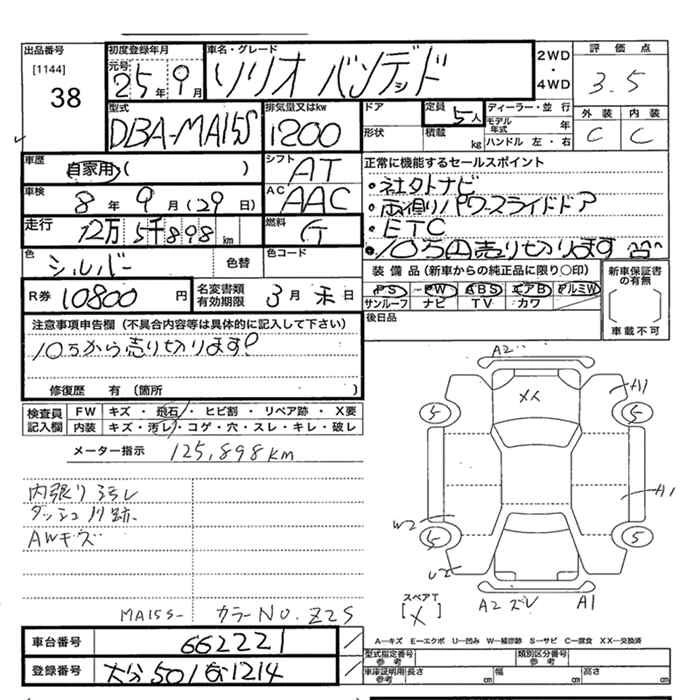 出品番号
[1144]
38
初度登録年月
元号 25年 9月
車名・グレード
ソリオ バンデット
2WD
・
4WD
評価点
3.5
外装 内装
C C
型式
DBA-MA15S
排気量又はkw
1200
ドア
形状
定員 5人
積載 kg
ディーラー・並行
モデル年式 年
ハンドル 左・右
車歴
自家用 ( )
シフト
AT
車検
8年 9月 (29日)
AC
AAC
走行
12万5千898km
燃料
G
色
シルバー
色替
色コード
正常に機能するセールスポイント
・社外ナビ
・両側パワースライドドア
・ETC
・10万円売り切ります
装備品 (新車からの純正品に限り○印)
PS PW ABS エアB アルミW
サンルーフ ナビ TV カワ
後日品
新車保証書の有無
車載不可
R券 10800円
名変書類有効期限 3月末日
注意事項申告欄 (不具合内容等は具体的に記入して下さい)
10万から売り切ります!
修復歴 有 (箇所 )
検査員記入欄
FW キズ・飛石・ヒビ割・リペア跡・X要
内装 キズ・汚レ・コゲ・穴・スレ・キレ・破レ
メーター指示 125,898km
内張り汚レ
ダッシュ川跡
AWキズ
MA15S- カラーNO. Z2S
A2
メ人
A1
5 5
A1
W2
5 5
U2
A2 ズレ A1
スペアT
[X]
A―キズ E―エクボ U―凹み W―補修跡 S―サビ C―腐食 XX―交換済
車台番号 662221
登録番号 大分 501 1214
型式指定番号 参考
類別区分番号 参考
車庫証明用 参考
長さ cm 幅 cm 高さ cm